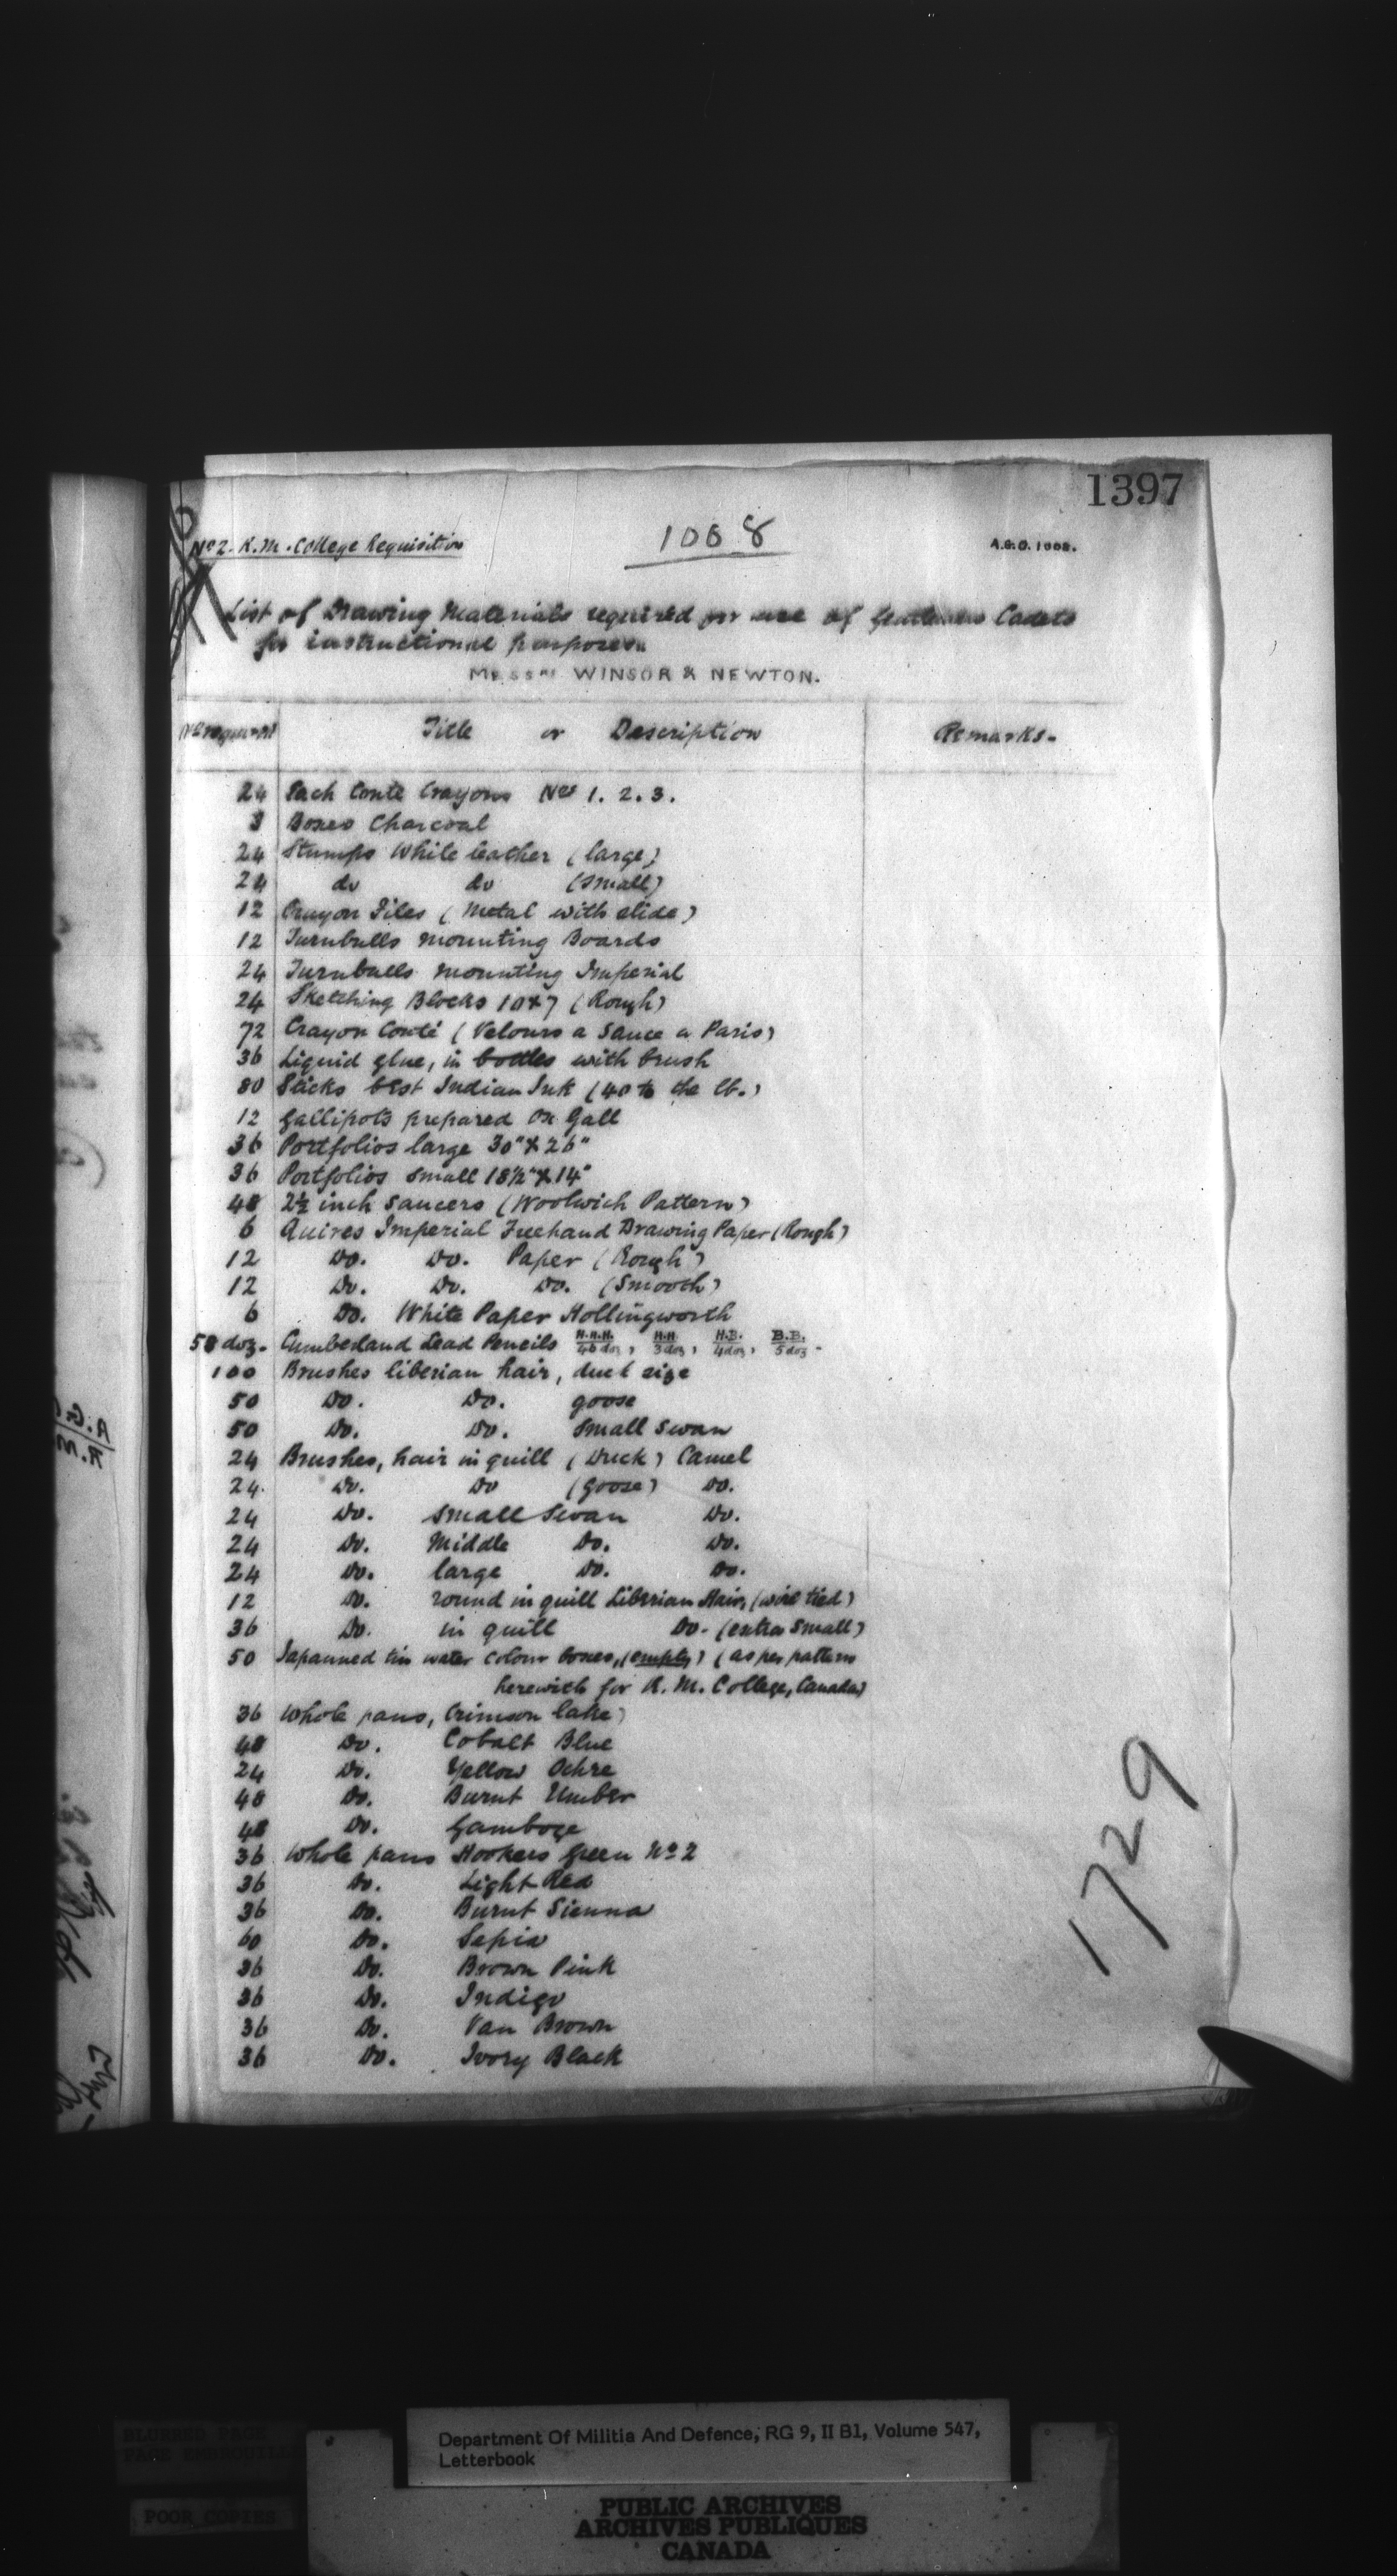 1397
No 2. R.M. College Requisition
1008
A.G.O. 1008.
List of Drawing Materials required for use of Gentlemen Cadets
for instructional purposes.
Messrs WINSOR & NEWTON.
No required Title or Description Remarks.
24 Each Conte Crayons Nos 1. 2. 3.
3 Boxes Charcoal
24 Stumps White leather (large)
24 do do (small)
12 Crayon Files (Metal with slide)
12 Turnbulls mounting Boards
24 Turnbulls mounting Imperial
24 Sketching Blocks 10x7 (Rough)
72 Crayon Conté (Velours a Sauce a Paris)
36 Liquid glue, in bottles with brush
80 Sticks best Indian Ink (40 to the lb.)
12 Gallipots prepared Ox Gall
36 Portfolios large 30" x 26"
36 Portfolios small 18½" x 14"
48 2½ inch Saucers (Woolwich Pattern)
6 Quires Imperial Freehand Drawing Paper (Rough)
12 Do. Do. Paper (Rough)
12 Do. Do. Do. (Smooth)
6 Do. White Paper Hollingworth
58 doz. Cumberland Lead Pencils H.H.H. 46 doz, H.H 3 doz, H.B. 4 doz, B.B. 5 doz.
100 Brushes liberian hair, duck size
50 Do. Do. goose
50 Do. Do. small swan
24 Brushes, hair in quill (Duck) Camel
24. Do. Do (goose) Do.
24 Do. small Swan Do.
24 Do. Middle Do. Do.
24 Do. large Do. Do.
12 Do. round in quill Liberian Hair, (wire tied)
36 Do. in quill Do. (extra small)
50 Japanned tin water colour boxes, (empty) (as per pattern
herewith for R. M. College, Canada)
36 Whole pans, Crimson lake
48 Do. Cobalt Blue
24 Do. Yellow Ochre
48 Do. Burnt Umber
48 Do. Gamboge
36 Whole pans Hookers Green No 2
36 Do. Light Red
36 Do. Burnt Sienna
60 Do. Sepia
36 Do. Brown Pink
36 Do. Indigo
36 Do. Van Brown
36 Do. Ivory Black
1729
BLURRED PAGE
POOR COPIES
Department Of Militia And Defence, RG 9, II B1, Volume 547,
Letterbook
PUBLIC ARCHIVES
ARCHIVES PUBLIQUES
CANADA